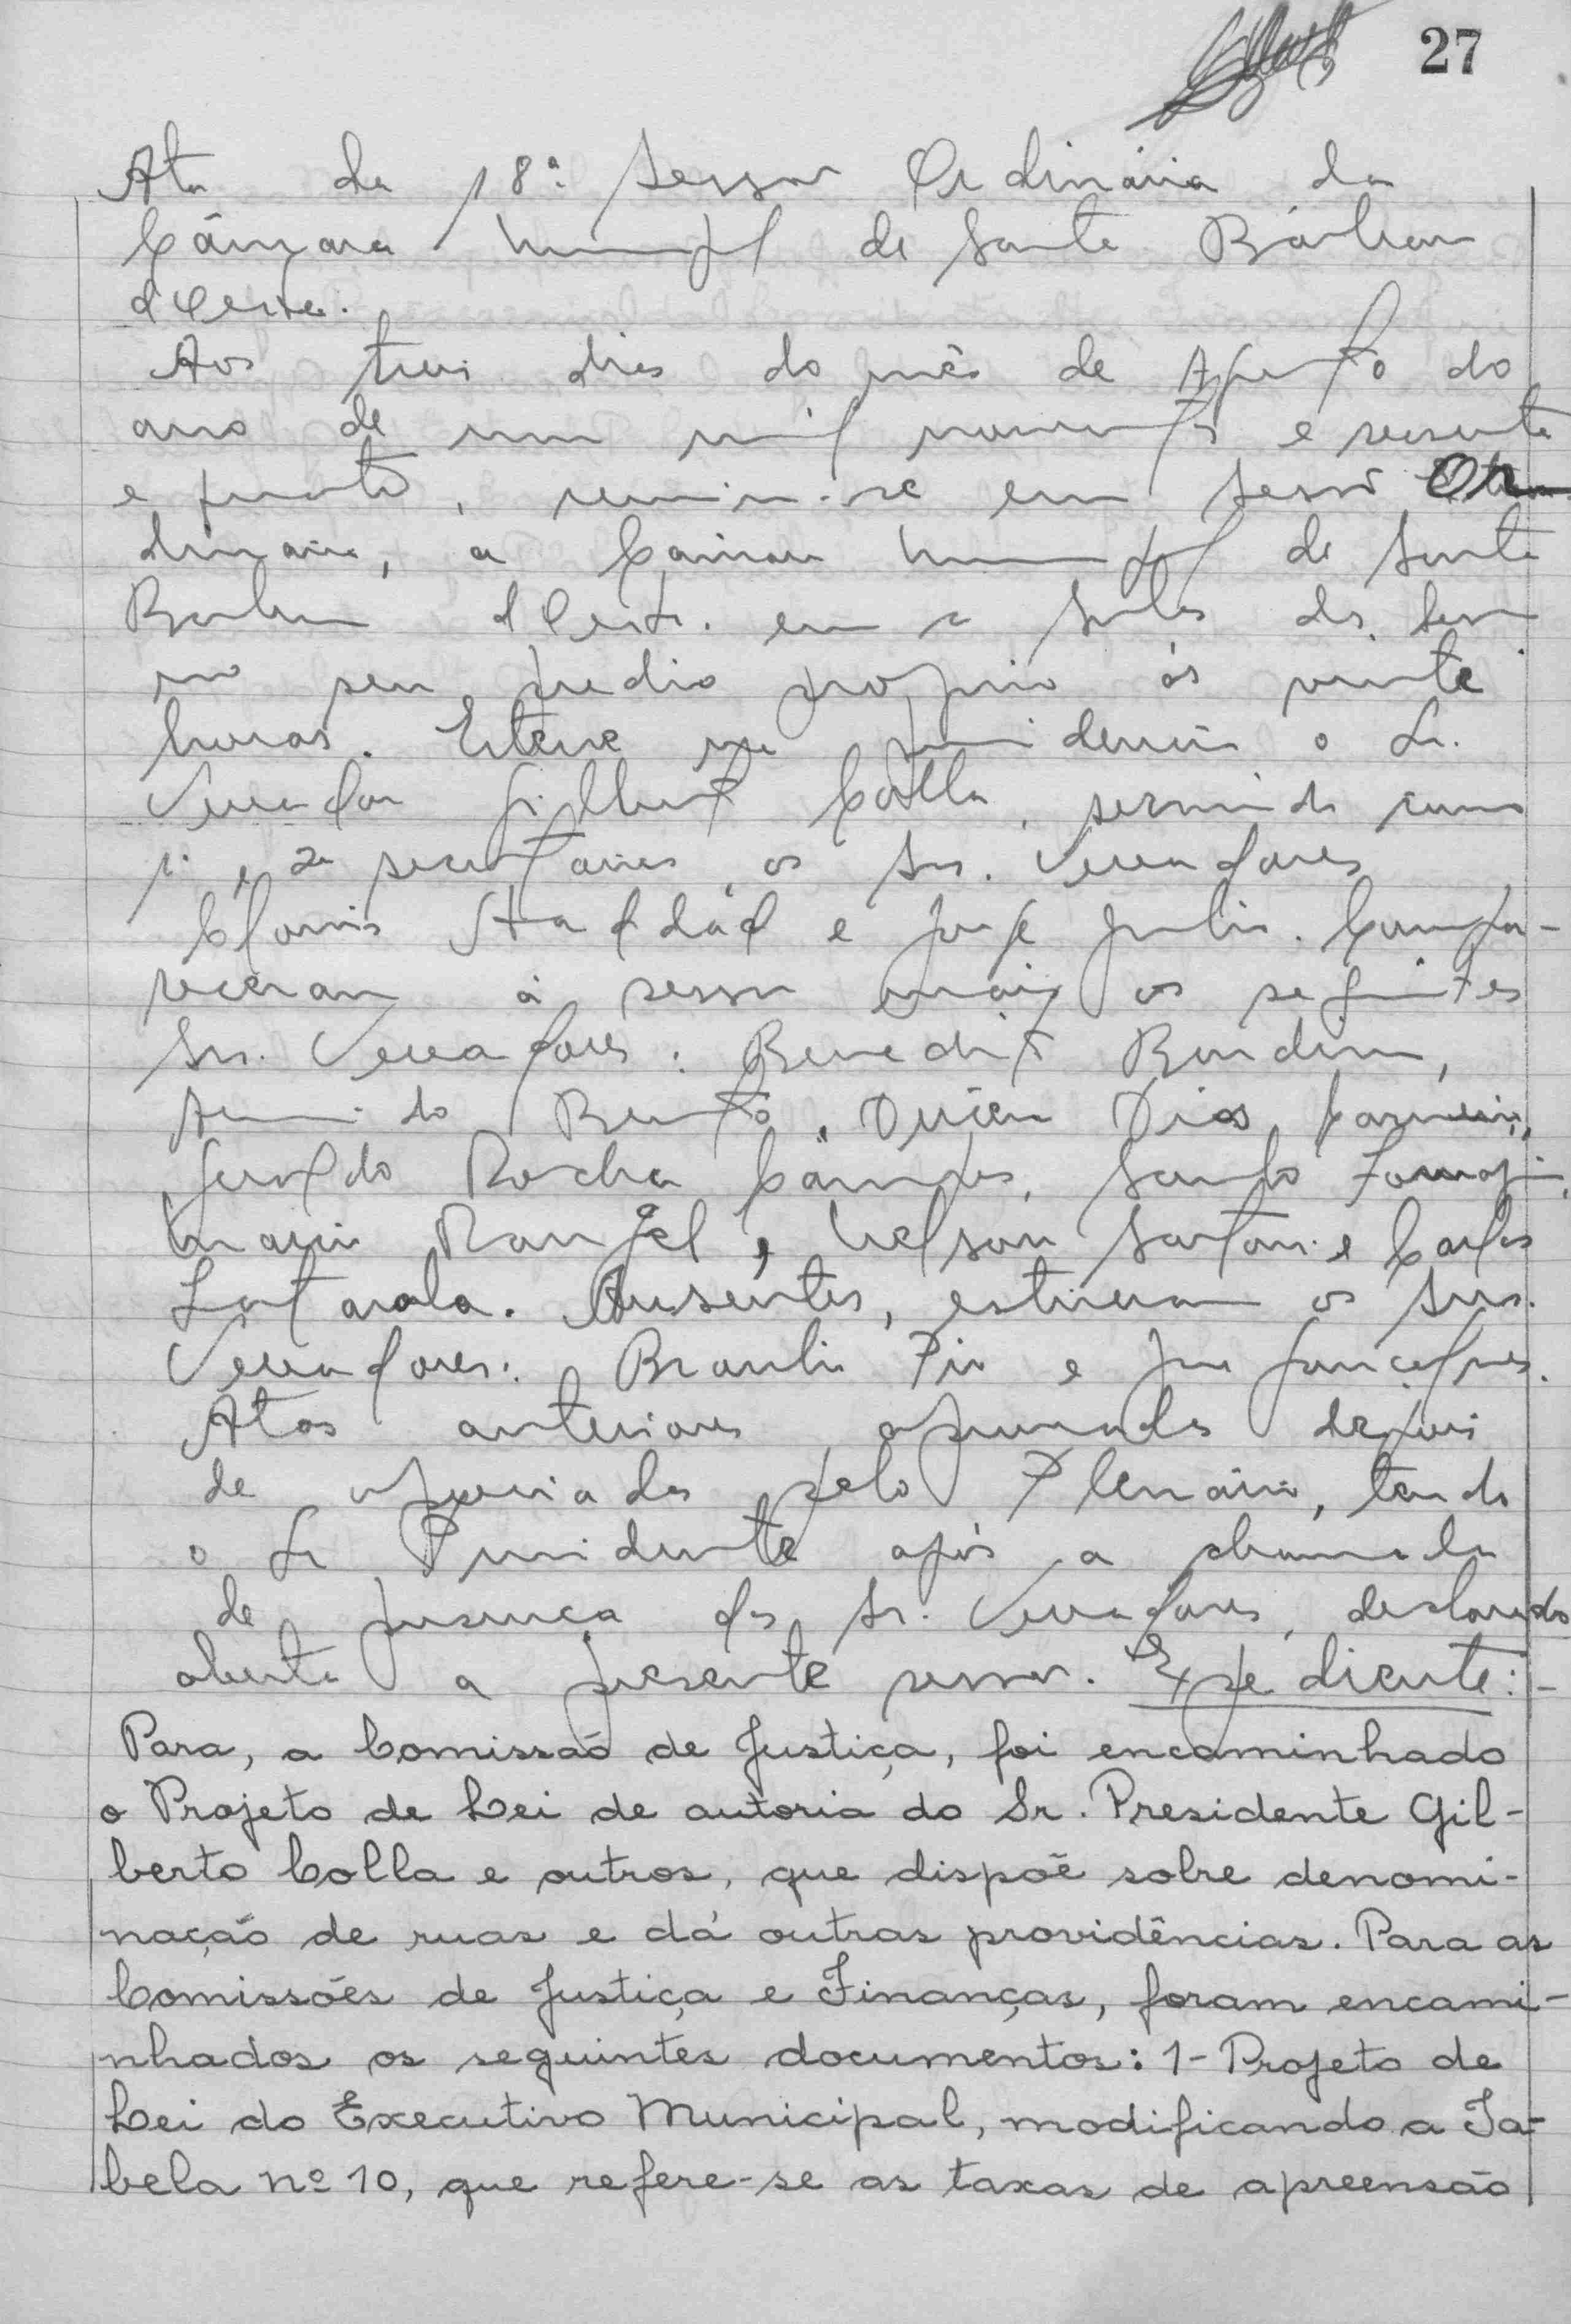 27
Ata da 18ª Sessão Ordinária da
Câmara Municipal de Santa Bárbara
d'Oeste.
Aos tres dias do mês de Agosto do
ano de um mil novecentos e sessenta
e quatro, reuniu-se em sessão Or
dinaria, a Camara Municipal de Santa
Barbara d'Oeste. em a Salas das. Sessões
no seu predio proprio ás vinte
horas. Esteve na presidencia o Sr.
Vereador Gilberto Colla, servindo como
1º e 2º secretarios os Srs. Vereadores
Clovis Haddad e José Julio. Compa-
receram á sessão mais os seguintes
Srs. Vereadores: Benedito Bondim,
do Bento, Dias Carneiro,
Geraldo Rocha Campos, Santo
Mario Rangel, Nelson Sartori e Carlos
Ausentes, estiveram os Srs.
Vereadores: Braulio Pio e José Gonçalves.
Atas anteriores aprovadas depois
de apreciadas pelo Plenário, tendo
o Sr Presidente após a chamada
de presença dos Sr. Vereadores, declarado
aberta a presente sessão. Expediente:-
Para, a Comissão de Justiça, foi encaminhado
o Projeto de Lei de autoria do Sr. Presidente Gil-
berto Colla e outros, que dispoẽ sobre denomi-
nação de ruas e dá outras providências. Para as
Comissões de Justiça e Finanças, foram encami-
nhados os seguintes documentos: 1- Projeto de
Lei do Executivo Municipal, modificando a Ta-
bela nº 10, que refere-se as taxas de apreensão